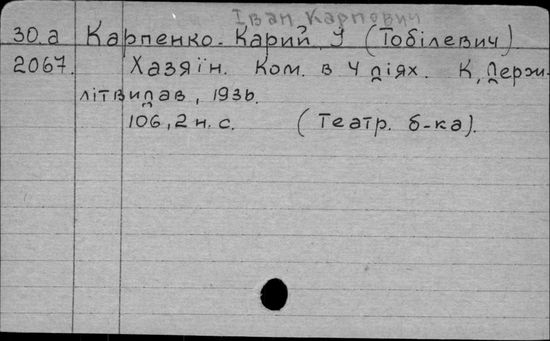 Іван Карпович
30.а Карпенко-Карий, І (Тобілевич).
2067. Хазяїн. Ком. в 4 діях. К, Держ-
літвидав, 1936.
106, 2 н. с. (Театр. б-ка).